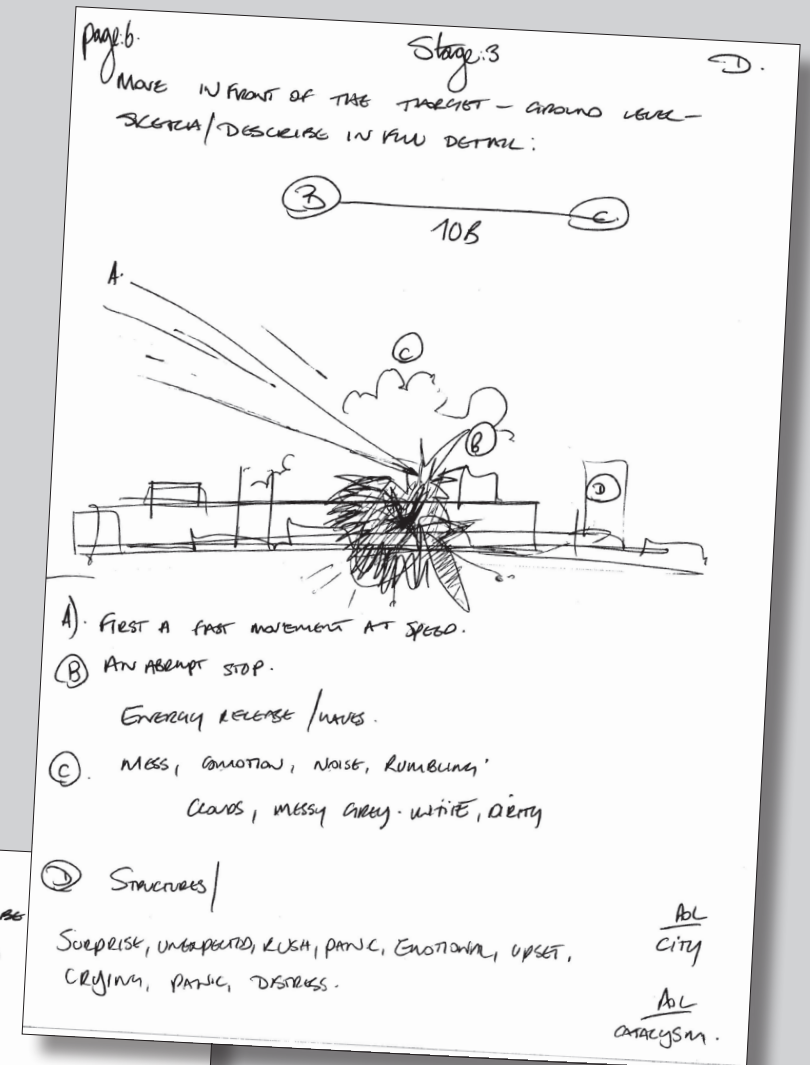 page:6.
Stage:3
D.
MOVE IN FRONT OF THE TARGET - GROUND LEVEL -
SKETCH/DESCRIBE IN FULL DETAIL:
B
C
10B
A.
C
B
D
A). FIRST A FAST MOVEMENT AT SPEED.
B AN ABRUPT STOP.
ENERGY RELEASE / WAVES.
C. MESS, COMOTION, NOISE, RUMBLING'
CLOUDS, MESSY GREY. WHITE, DIRTY
D STRUCTURES/
SURPRISE, UNEXPECTED, RUSH, PANIC, EMOTIONAL, UPSET,
CRYING, PANIC, DISTRESS.
AOL
CITY
AOL
CATACLYSM.
BE